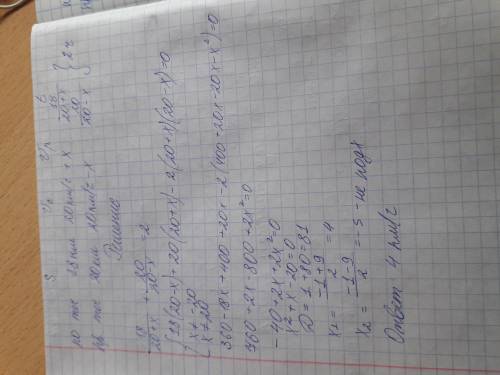 S V t
по теч 18 км 20 км/ч + x 18/(20+x) } 2ч
пр теч 20 км 20 км/ч - x 20/(20-x)
Решение
18/(20+x) + 20/(20-x) = 2
{ 18(20-x)+20(20+x)-2(20+x)(20-x)=0
x ≠ -20
x ≠ 20
360-18x+400+20x-2(400+20x-20x-x²)=0
760+2x-800+2x²=0
-40+2x+2x²=0
x²+x-20=0
D=1+80=81
x₁= (-1+9)/2 =4
x₂= (-1-9)/2 =-5 - не подх
Ответ 4 км/ч